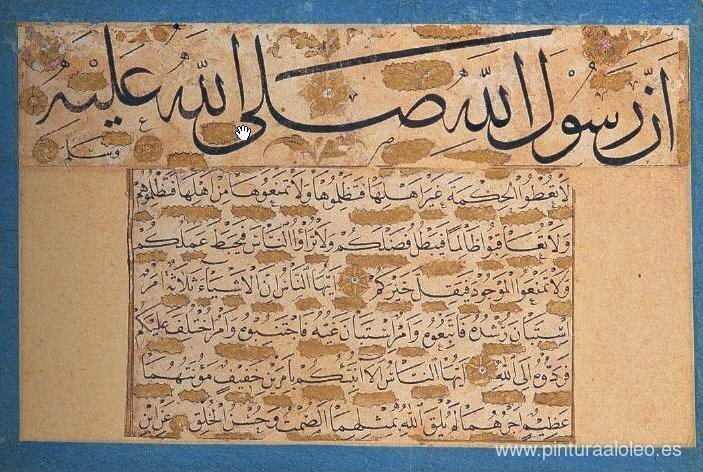 انّ رسول الله صلى الله عليه
وسلم
لا تعطوا الحكمة غير اهلها فتظلموها ولا تمنعوها من اهلها فتظلموهم
ولا تعاقبوا ظالما فيبطل فضلكم ولا تراؤا الناس فيحبط عملكم
ولا تمنعوا الموجود فيقل خيركم ايها الناس ان الاشياء ثلاثة امر
استبان رشده فاتبعوه وامر استبان غيه فاجتنبوه وامر اختلف عليكم
فردوه الى الله ايها الناس الا انبئكم بامرين خفيف مؤنتهما
عظيم اجرهما لم يلق الله بمثلهما الصمت وحسن الخلق
www.pinturaaloleo.es